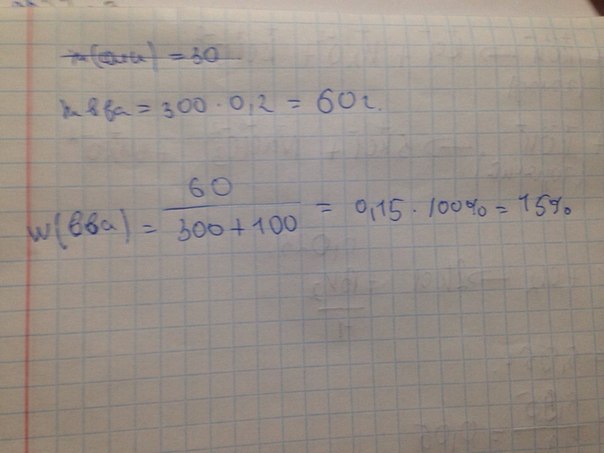 = 30
m вва = 300 · 0,2 = 60г.
w(вва) = 60 / 300+100 = 0,15 · 100% = 15%